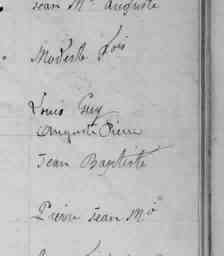 Jean Mie Auguste
Modeste Loïs
Louis Guy
Auguste Pierre
Jean Baptiste
Pierre Jean Mie